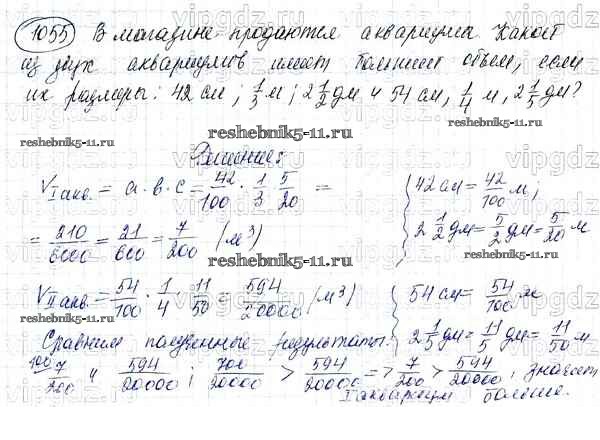 1055 В магазине продаются аквариумы. Какой
из двух аквариумов имеет больший объем, если
их размеры: 42 см; 1/3 м; 2 1/2 дм и 54 см, 1/4 м, 2 1/5 дм?
reshebnik5-11.ru reshebnik5-11.ru
Решение:
V I акв. = a · b · c = 42/100 · 1/3 · 5/20 =
= 210/6000 = 21/600 = 7/200 (м³)
42 см = 42/100 м;
2 1/2 дм = 5/2 дм = 5/20 м
reshebnik5-11.ru
V II акв. = 54/100 · 1/4 · 11/50 = 594/20000 (м³)
54 см = 54/100 м
2 1/5 дм = 11/5 дм = 11/50 м
reshebnik5-11.ru
Сравним полученные результаты:
100/ 7/200 и 594/20000; 700/20000 > 594/20000 => 7/200 > 594/20000; значит
I аквариум больше.
vipgdz.ru